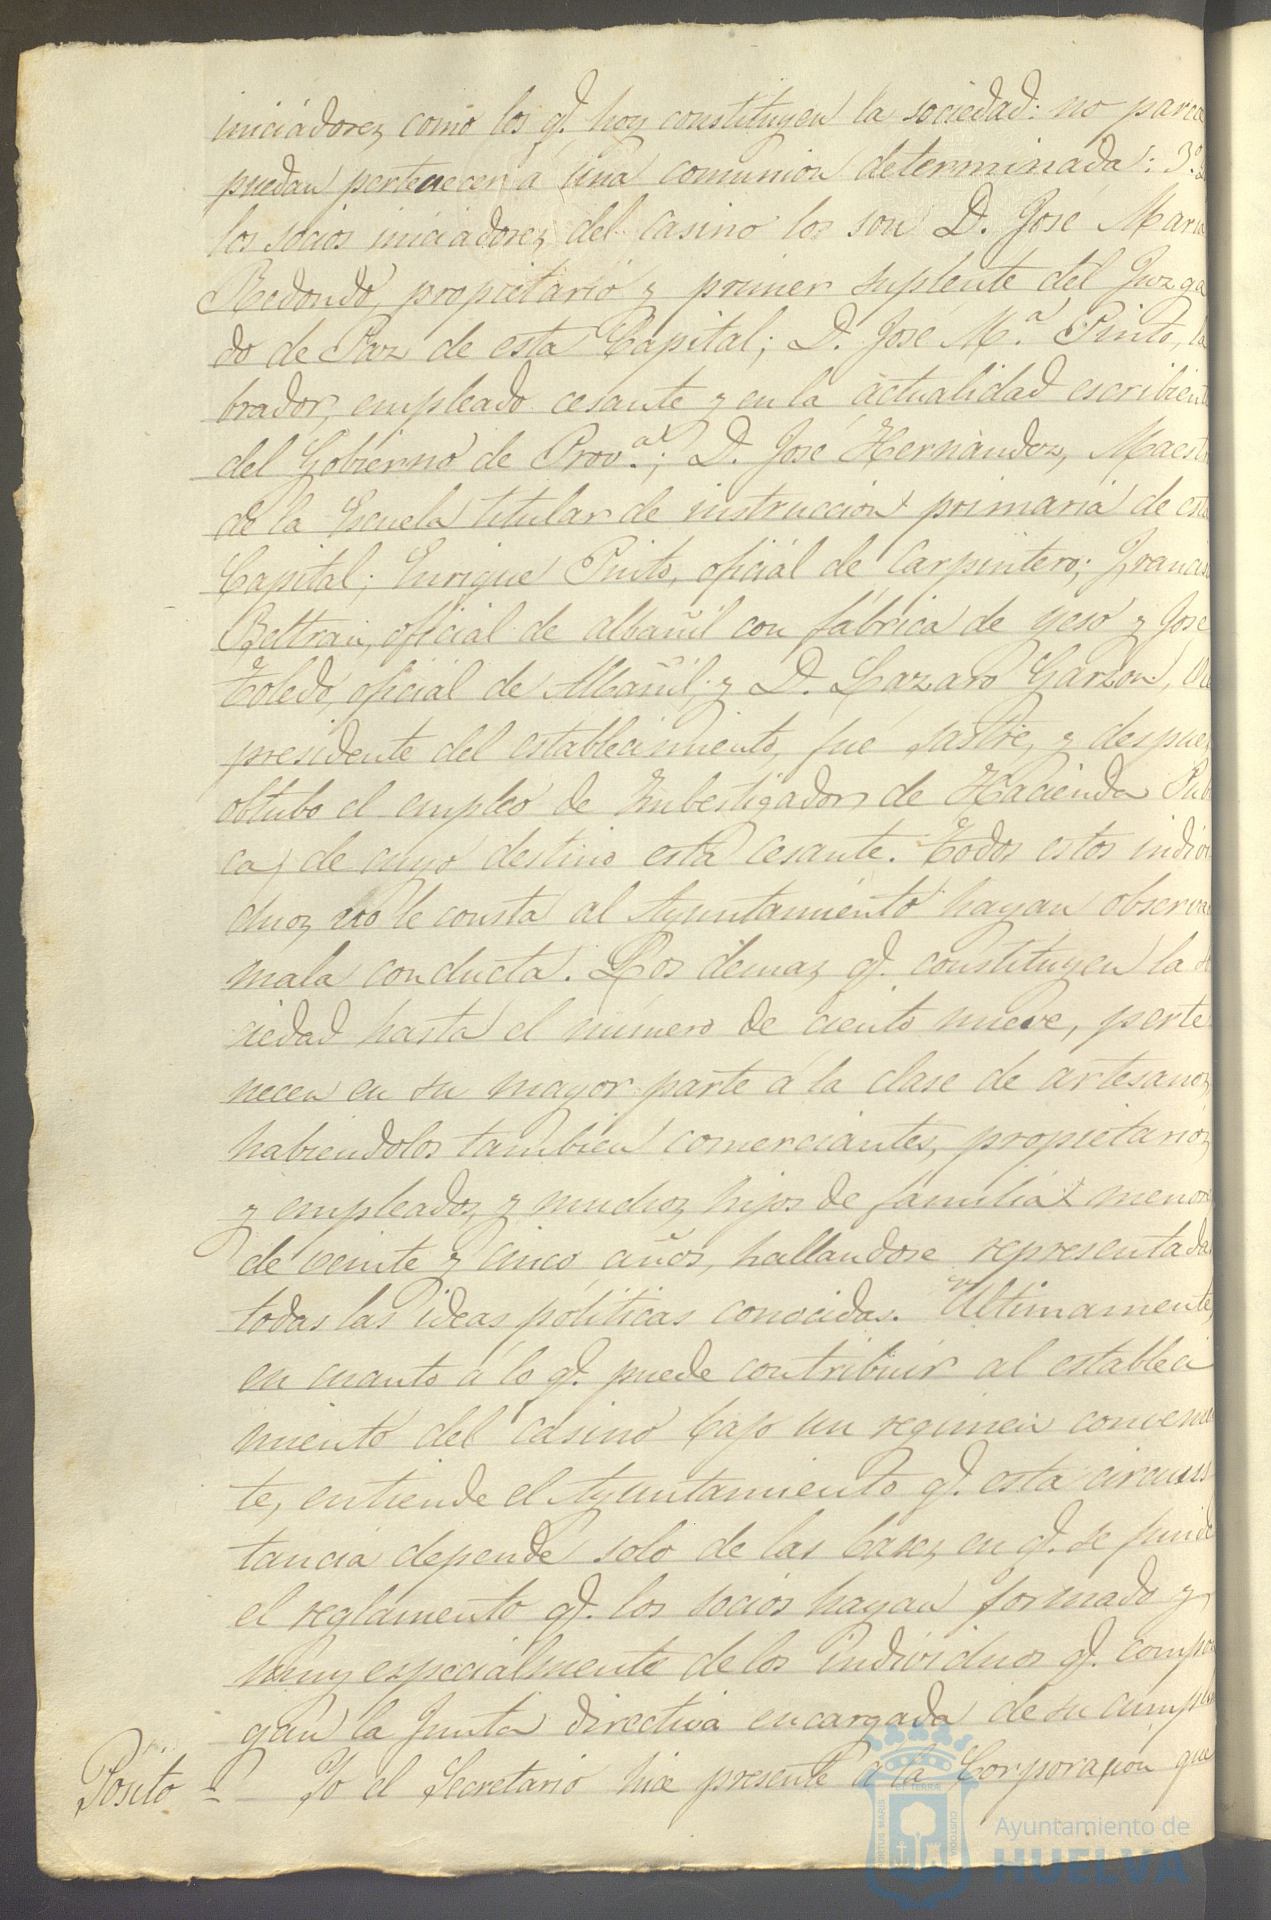 iniciadores como los q.e hoy constituyen la sociedad: no parece
puedan pertenecer á una comunion determinada: 3.º
los socios iniciadores del casino los son D. José Maria
Redondo, propietario y primer suplente del Juzga
do de Paz de esta Capital; D. José M.ª Pinto, la
brador, empleado cesante y en la actualidad escribiente
del Gobierno de Prov.al; D. José Hernandez, Maestro
de la Escuela titular de instruccion primaria de esta
Capital; Enrique Pinto, oficial de Carpintero; Francisco
Beltran, oficial de albañil con fábrica de yeso y José
Toledo, oficial de Albañil; y D. Lazaro Garzon, Vice
presidente del establecimiento, fué sastre, y despues
obtubo el empleo de Imbestigador de Hacienda Publi
ca, de cuyo destino está cesante. Todos estos indivi
duos no le consta al Ayuntamiento hayan observado
mala conducta. Los demas q.e constituyen la so
ciedad hasta el número de ciento nueve, perte
necen en su mayor parte á la clase de artesanos,
habiendolos tambien comerciantes, propietarios
y empleados, y muchos hijos de familia menores
de veinte y cinco años, hallandose representadas
todas las ideas políticas conocidas. Ultimamente,
en cuanto á lo q.e puede contribuir al estableci
miento del casino bajo un regimen convenien
te, entiende el Ayuntamiento q.e esta circuns
tancia depende solo de las bases en q.e se funde
el reglamento q.e los socios hayan formado y
muy especialmente de los individuos q.e compon
gan la Junta directiva encargada de su cumpli
Pósito - Yo el Secretario hice presente á la Corporacion que
Ayuntamiento de
HUELVA